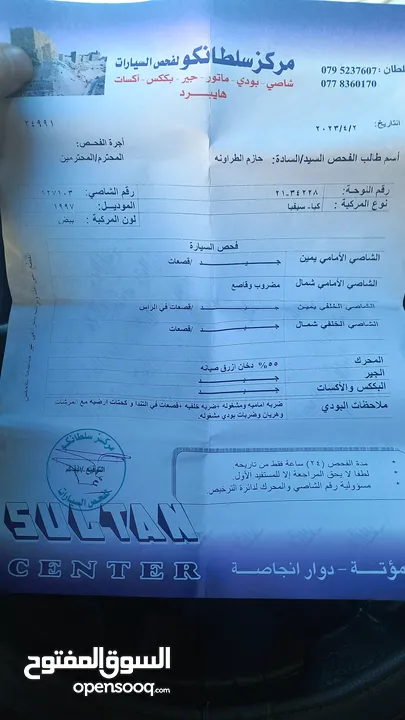 مركز سلطانكو لفحص السيارات
شاصي - بودي - ماتور - جير - بككس - اكسات
هايبرد
سلطان: 079 5237607
077 8360170
التاريخ: ٢٠٢٣/٤/٢
٢٤٩٩١
أجرة الفحص:
أسم طالب الفحص السيد/السادة: حازم الطراونه
المحترم/المحترمين
رقم اللوحة: ٢١-٣٤٢٢٨
رقم الشاصي: ١٢٧١٠٣
نوع المركبة : كيا- سيفيا
الموديل: ١٩٩٧
لون المركبة : بيض
فحص السيارة
الشاصي الأمامي يمين جـــيـــد /قصعات
الشاصي الأمامي شمال مضروب وقاصع
الشاصي الخلفي يمين جـــيـــد /قصعات في الراس
الشاصي الخلفي شمال جـــيـــد /قصعات
المحرك ٥٥% دخان ازرق صيانه
الجير جـــيـــد
البككس والأكسات جـــيـــد
ملاحظات البودي ضربه اماميه ومشغوله +ضربه خلفيه +قصعات في التندا و كحتات ارضيه مع
وهريان وضربات بودي مشغوله.
مدة الفحص (٢٤) ساعة فقط من تاريخه.
لطفا لا يحق المراجعة إلا للمستفيد الأول.
مسؤولية رقم الشاصي والمحرك لدائرة الترخيص
مركز سلطانكو
لفحص السيارات
SULTAN
CENTER
مؤتة - دوار انجاصة
السوق المفتوح
opensooq.com